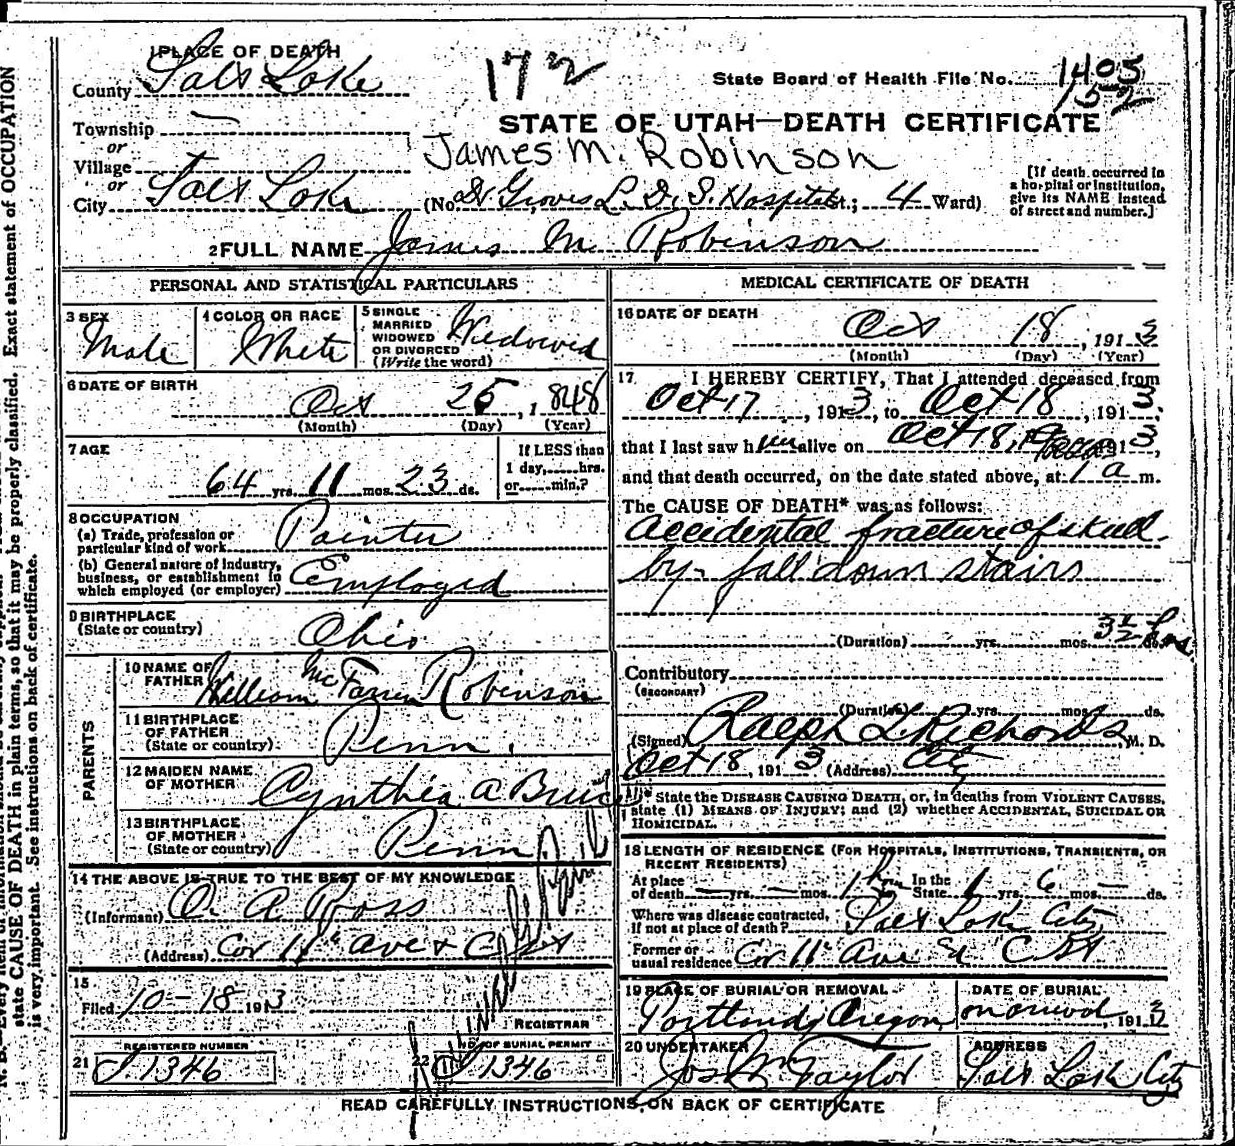 1 PLACE OF DEATH
County Salt Lake
172
State Board of Health File No. 1405
152
STATE OF UTAH—DEATH CERTIFICATE
Township
or
Village
James M. Robinson
or
City Salt Lake (No. Dr Groves L. D. S. Hospital St.; 4 Ward)
[If death occurred in
a hospital or institution,
give its NAME instead
of street and number.]
2 FULL NAME James M Robinson
PERSONAL AND STATISTICAL PARTICULARS
3 SEX Male
4 COLOR OR RACE White
5 SINGLE
MARRIED
WIDOWED
OR DIVORCED
(Write the word) Widowed
6 DATE OF BIRTH
Oct 25, 1848
(Month) (Day) (Year)
7 AGE
64 yrs. 11 mos. 23 ds.
If LESS than
1 day,......hrs.
or......min.?
8 OCCUPATION
(a) Trade, profession or
particular kind of work Painter
(b) General nature of industry,
business, or establishment in
which employed (or employer) Employed
9 BIRTHPLACE
(State or country) Ohio
PARENTS
10 NAME OF
FATHER William Robinson
11 BIRTHPLACE
OF FATHER
(State or country) Penn.
12 MAIDEN NAME
OF MOTHER Cynthia A
13 BIRTHPLACE
OF MOTHER
(State or country) Penn
14 THE ABOVE IS TRUE TO THE BEST OF MY KNOWLEDGE
(Informant) O. A. Ross
(Address) Cor 11th Ave & C St
15
Filed 10-18 1913
REGISTRAR
21 REGISTERED NUMBER
1346
22 NO. OF BURIAL PERMIT
1346
MEDICAL CERTIFICATE OF DEATH
16 DATE OF DEATH
Oct 18, 1913
(Month) (Day) (Year)
17 I HEREBY CERTIFY, That I attended deceased from
Oct 17, 1913, to Oct 18, 1913,
that I last saw him alive on Oct 18, 1913,
and that death occurred, on the date stated above, at 1 a m.
The CAUSE OF DEATH* was as follows:
Accidental fracture of skull
by fall down stairs
(Duration) yrs. mos. 3½ hrs.
Contributory
(SECONDARY)
(Duration) yrs. mos. ds.
(Signed) Ralph L. Richards M. D.
Oct 18, 1913 (Address) City
* State the DISEASE CAUSING DEATH, or, in deaths from VIOLENT CAUSES,
state (1) MEANS OF INJURY; and (2) whether ACCIDENTAL, SUICIDAL OR
HOMICIDAL.
18 LENGTH OF RESIDENCE (FOR HOSPITALS, INSTITUTIONS, TRANSIENTS, OR
RECENT RESIDENTS)
At place
of death — yrs. — mos. 1 hr In the
State 1 yrs. 6 mos. — ds.
Where was disease contracted,
If not at place of death? Salt Lake City
Former or
usual residence Cor 11 Ave & C St
19 PLACE OF BURIAL OR REMOVAL
Portland, Oregon
DATE OF BURIAL
1913
20 UNDERTAKER
Jos Wm Taylor
ADDRESS
Salt Lake City
READ CAREFULLY INSTRUCTIONS ON BACK OF CERTIFICATE
state CAUSE OF DEATH in plain terms, so that it may be properly classified. Exact statement of OCCUPATION
is very important. See instructions on back of certificate.